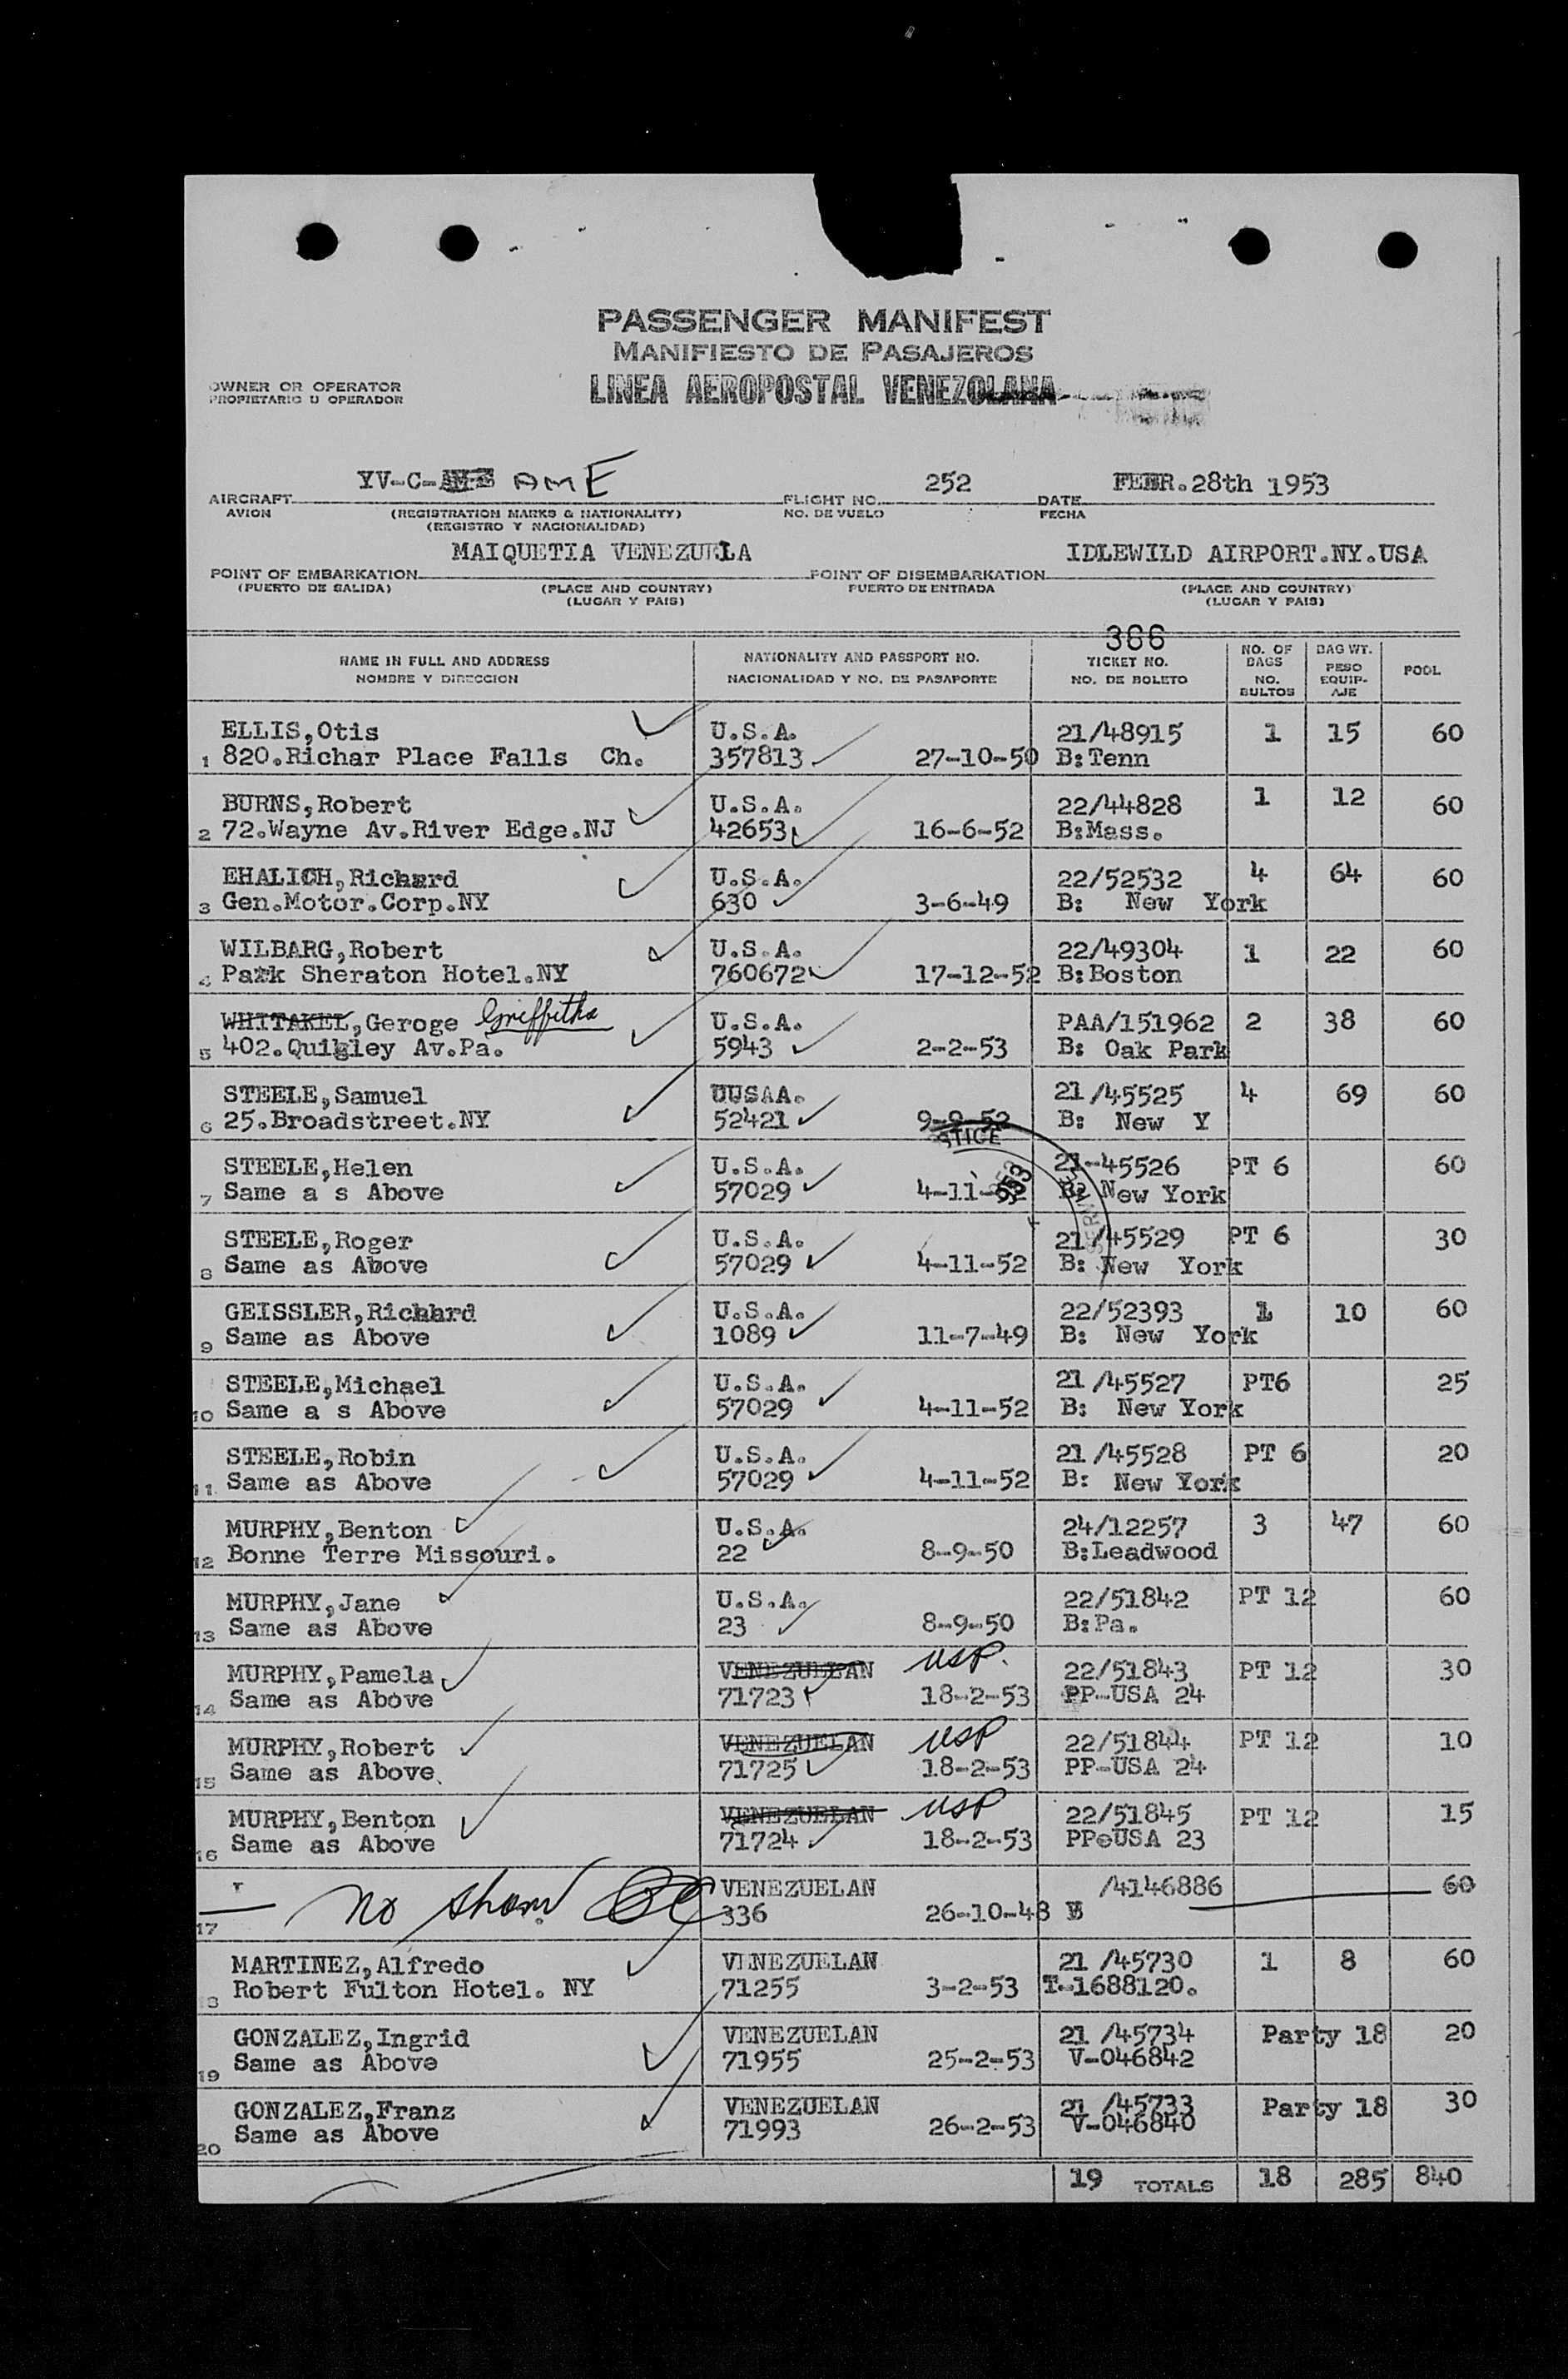 PASSENGER MANIFEST
MANIFIESTO DE PASAJEROS
OWNER OR OPERATOR
PROPIETARIO U OPERADOR
LINEA AEROPOSTAL VENEZOLANA
YV-C- AME
252
FEBR.28th 1953
AIRCRAFT FLIGHT NO. DATE
AVION (REGISTRATION MARKS & NATIONALITY) NO. DE VUELO FECHA
(REGISTRO Y NACIONALIDAD)
MAIQUETIA VENEZUELA IDLEWILD AIRPORT.NY.USA
POINT OF EMBARKATION POINT OF DISEMBARKATION
(PUERTO DE SALIDA) (PLACE AND COUNTRY) PUERTO DE ENTRADA (PLACE AND COUNTRY)
(LUGAR Y PAIS) (LUGAR Y PAIS)
366
NAME IN FULL AND ADDRESS NATIONALITY AND PASSPORT NO. TICKET NO. NO. OF BAGS BAG WT. POOL
NOMBRE Y DIRECCION NACIONALIDAD Y NO. DE PASAPORTE NO. DE BOLETO NO. BULTOS PESO EQUIP-AJE
ELLIS,Otis U.S.A. 21/48915 1 15 60
1 820.Richar Place Falls Ch. 357813 27-10-50 B:Tenn
BURNS,Robert U.S.A. 22/44828 1 12 60
2 72.Wayne Av.River Edge.NJ 42653 16-6-52 B:Mass.
EHALICH,Richard U.S.A. 22/52532 4 64 60
3 Gen.Motor.Corp.NY 630 3-6-49 B: New York
WILBARG,Robert U.S.A. 22/49304 1 22 60
4 Park Sheraton Hotel.NY 760672 17-12-52 B:Boston
WHITAKEL,Geroge Griffiths U.S.A. PAA/151962 2 38 60
5 402.Quigley Av.Pa. 5943 2-2-53 B: Oak Park
STEELE,Samuel UUSAA. 21/45525 4 69 60
6 25.Broadstreet.NY 52421 9-9-52 B: New Y
STEELE,Helen U.S.A. 21-45526 PT 6 60
7 Same a s Above 57029 4-11-52 B: New York
STEELE,Roger U.S.A. 21/45529 PT 6 30
8 Same as Above 57029 4-11-52 B: New York
GEISSLER,Richard U.S.A. 22/52393 1 10 60
9 Same as Above 1089 11-7-49 B: New York
STEELE,Michael U.S.A. 21 /45527 PT6 25
10 Same a s Above 57029 4-11-52 B: New York
STEELE,Robin U.S.A. 21 /45528 PT 6 20
11 Same as Above 57029 4-11-52 B: New York
MURPHY,Benton U.S.A. 24/12257 3 47 60
12 Bonne Terre Missouri. 22 8-9-50 B:Leadwood
MURPHY,Jane U.S.A. 22/51842 PT 12 60
13 Same as Above 23 8-9-50 B:Pa.
MURPHY,Pamela VENEZUELAN USP. 22/51843 PT 12 30
14 Same as Above 71723 18-2-53 PP-USA 24
MURPHY,Robert VENEZUELAN USP 22/51844 PT 12 10
15 Same as Above 71725 18-2-53 PP-USA 24
MURPHY,Benton VENEZUELAN USP 22/51845 PT 12 15
16 Same as Above 71724 18-2-53 PPeUSA 23
No show VENEZUELAN /4146886 60
17 336 26-10-48
MARTINEZ,Alfredo VENEZUELAN 21 /45730 1 8 60
18 Robert Fulton Hotel. NY 71255 3-2-53 T-1688120.
GONZALEZ,Ingrid VENEZUELAN 21 /45734 Party 18 20
19 Same as Above 71955 25-2-53 V-046842
GONZALEZ,Franz VENEZUELAN 21 /45733 Party 18 30
20 Same as Above 71993 26-2-53 V-046840
19 TOTALS 18 285 840